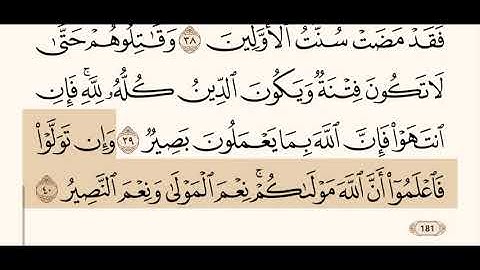 فَقَدْ مَضَتْ سُنَّتُ الْأَوَّلِينَ ٣٨ وَقَاتِلُوهُمْ حَتَّىٰ
لَا تَكُونَ فِتْنَةٌ وَيَكُونَ الدِّينُ كُلُّهُ لِلَّهِ ۚ فَإِنِ
انتَهَوْا فَإِنَّ اللَّهَ بِمَا يَعْمَلُونَ بَصِيرٌ ٣٩ وَإِن تَوَلَّوْا
فَاعْلَمُوا أَنَّ اللَّهَ مَوْلَاكُمْ ۚ نِعْمَ الْمَوْلَىٰ وَنِعْمَ النَّصِيرُ ٤٠
181